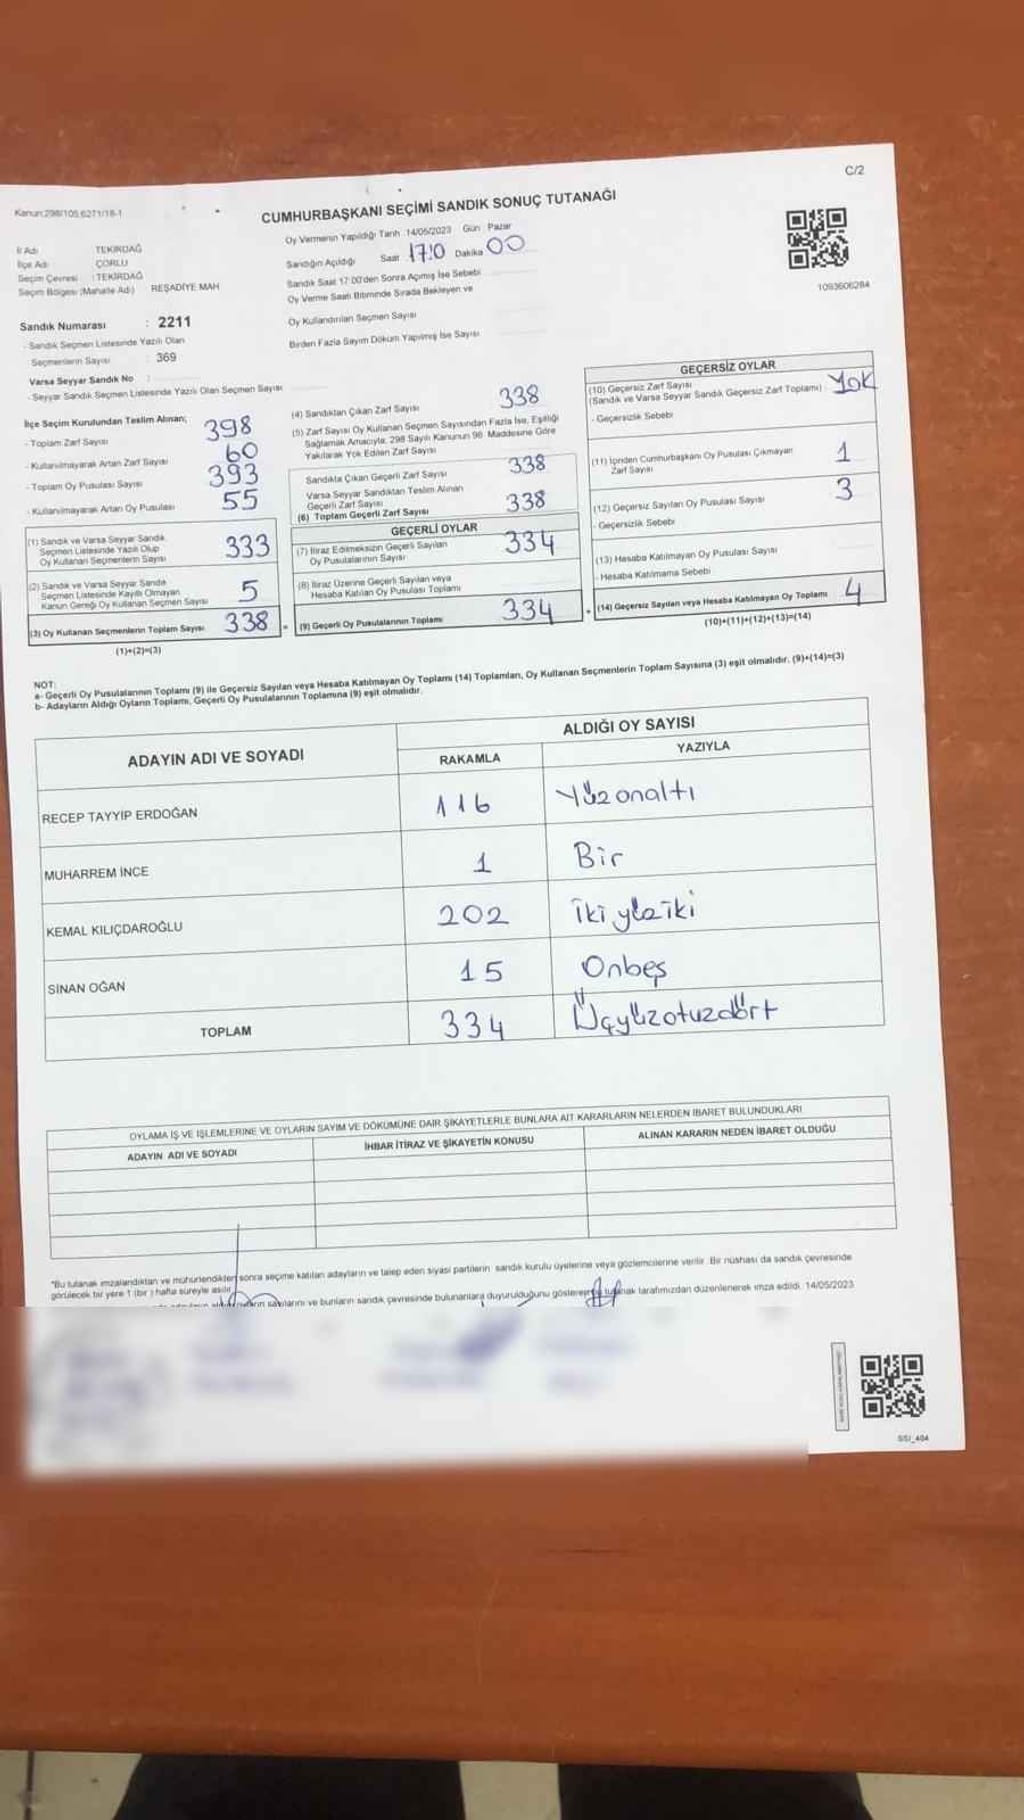 C/2
Kanun:298/105,6271/18-1
CUMHURBAŞKANI SEÇİMİ SANDIK SONUÇ TUTANAĞI
İl Adı TEKİRDAĞ
İlçe Adı ÇORLU
Seçim Çevresi : TEKİRDAĞ
Seçim Bölgesi (Mahalle Adı) REŞADİYE MAH
Oy Vermenin Yapıldığı Tarih :14/05/2023 Gün Pazar
Sandığın Açıldığı Saat 17:0 Dakika 00
Sandık Saat 17:00'den Sonra Açılmış İse Sebebi
Oy Verme Saati Bitiminde Sırada Bekleyen ve
Oy Kullandırılan Seçmen Sayısı
Birden Fazla Sayım Döküm Yapılmış İse Sayısı
1093606284
Sandık Numarası : 2211
- Sandık Seçmen Listesinde Yazılı Olan
Seçmenlerin Sayısı : 369
Varsa Seyyar Sandık No :
- Seyyar Sandık Seçmen Listesinde Yazılı Olan Seçmen Sayısı
İlçe Seçim Kurulundan Teslim Alınan;
- Toplam Zarf Sayısı 398
- Kullanılmayarak Artan Zarf Sayısı 60
- Toplam Oy Pusulası Sayısı 393
- Kullanılmayarak Artan Oy Pusulası 55
(1) Sandık ve Varsa Seyyar Sandık
Seçmen Listesinde Yazılı Olup
Oy Kullanan Seçmenlerin Sayısı 333
(2) Sandık ve Varsa Seyyar Sandık
Seçmen Listesinde Kayıtlı Olmayan
Kanun Gereği Oy Kullanan Seçmen Sayısı 5
(3) Oy Kullanan Seçmenlerin Toplam Sayısı 338
(1)+(2)=(3)
(4) Sandıktan Çıkan Zarf Sayısı 338
(5) Zarf Sayısı Oy Kullanan Seçmen Sayısından Fazla İse, Eşitliği
Sağlamak Amacıyla, 298 Sayılı Kanunun 98. Maddesine Göre
Yakılarak Yok Edilen Zarf Sayısı
Sandıkta Çıkan Geçerli Zarf Sayısı 338
Varsa Seyyar Sandıktan Teslim Alınan
Geçerli Zarf Sayısı
(6) Toplam Geçerli Zarf Sayısı 338
GEÇERLİ OYLAR
(7) İtiraz Edilmeksizin Geçerli Sayılan
Oy Pusulalarının Sayısı 334
(8) İtiraz Üzerine Geçerli Sayılan veya
Hesaba Katılan Oy Pusulası Toplamı
= (9) Geçerli Oy Pusulalarının Toplamı 334
GEÇERSİZ OYLAR
(10) Geçersiz Zarf Sayısı
(Sandık ve Varsa Seyyar Sandık Geçersiz Zarf Toplamı) Yok
- Geçersizlik Sebebi
(11) İçinden Cumhurbaşkanı Oy Pusulası Çıkmayan
Zarf Sayısı 1
(12) Geçersiz Sayılan Oy Pusulası Sayısı 3
- Geçersizlik Sebebi
(13) Hesaba Katılmayan Oy Pusulası Sayısı
- Hesaba Katılmama Sebebi
+ (14) Geçersiz Sayılan veya Hesaba Katılmayan Oy Toplamı 4
(10)+(11)+(12)+(13)=(14)
NOT:
a- Geçerli Oy Pusulalarının Toplamı (9) ile Geçersiz Sayılan veya Hesaba Katılmayan Oy Toplamı (14) Toplamları, Oy Kullanan Seçmenlerin Toplam Sayısına (3) eşit olmalıdır. (9)+(14)=(3)
b- Adayların Aldığı Oyların Toplamı, Geçerli Oy Pusulalarının Toplamına (9) eşit olmalıdır.
ADAYIN ADI VE SOYADI
ALDIĞI OY SAYISI
RAKAMLA YAZIYLA
RECEP TAYYİP ERDOĞAN 116 Yüzonaltı
MUHARREM İNCE 1 Bir
KEMAL KILIÇDAROĞLU 202 ikiyüziki
SİNAN OĞAN 15 Onbeş
TOPLAM 334 Üçyüzotuzdört
OYLAMA İŞ VE İŞLEMLERİNE VE OYLARIN SAYIM VE DÖKÜMÜNE DAİR ŞİKAYETLERLE BUNLARA AİT KARARLARIN NELERDEN İBARET BULUNDUKLARI
ADAYIN ADI VE SOYADI İHBAR İTİRAZ VE ŞİKAYETİN KONUSU ALINAN KARARIN NEDEN İBARET OLDUĞU
*Bu tutanak imzalandıktan ve mühürlendikten sonra seçime katılan adayların ve talep eden siyasi partilerin sandık kurulu üyelerine veya gözlemcilerine verilir. Bir nüshası da sandık çevresinde
görülecek bir yere 1 (bir ) hafta süreyle asılır.
sayılarını ve bunların sandık çevresinde bulunanlara duyurulduğunu gösteren tutanak tarafımızdan düzenlenerek imza edildi. 14/05/2023
SSI_404